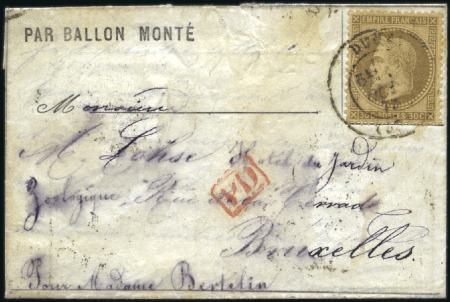 PAR BALLON MONTÉ
EMPIRE FRANÇAIS
30C 30C
Monsieur
M. Hôtel du Jardin
Zoologique, Rue
PD
Bruxelles.
Pour Madame Bertelin